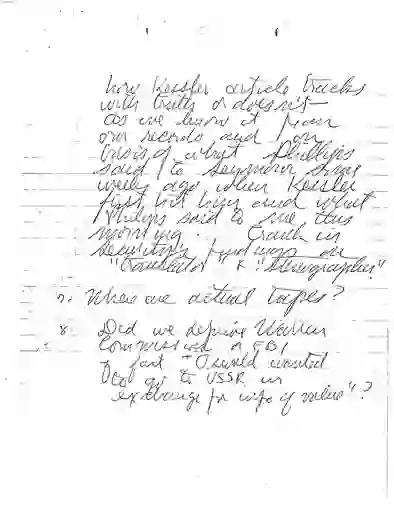 how Kessler article tracks
with truth or doesn't —
as we know it from
our records and on
basis of what Phillips
said to Seymour some
weeks ago when Kessler
first hit him and what
Phillips said to me this
morning. Crank in
security findings on
"Translator" & "Stenographer."
7. Where are actual tapes?
8. Did we deprive Warren
Commission &amp; FBI
of fact "Oswald wanted
to go to USSR in
exchange for info of value"?